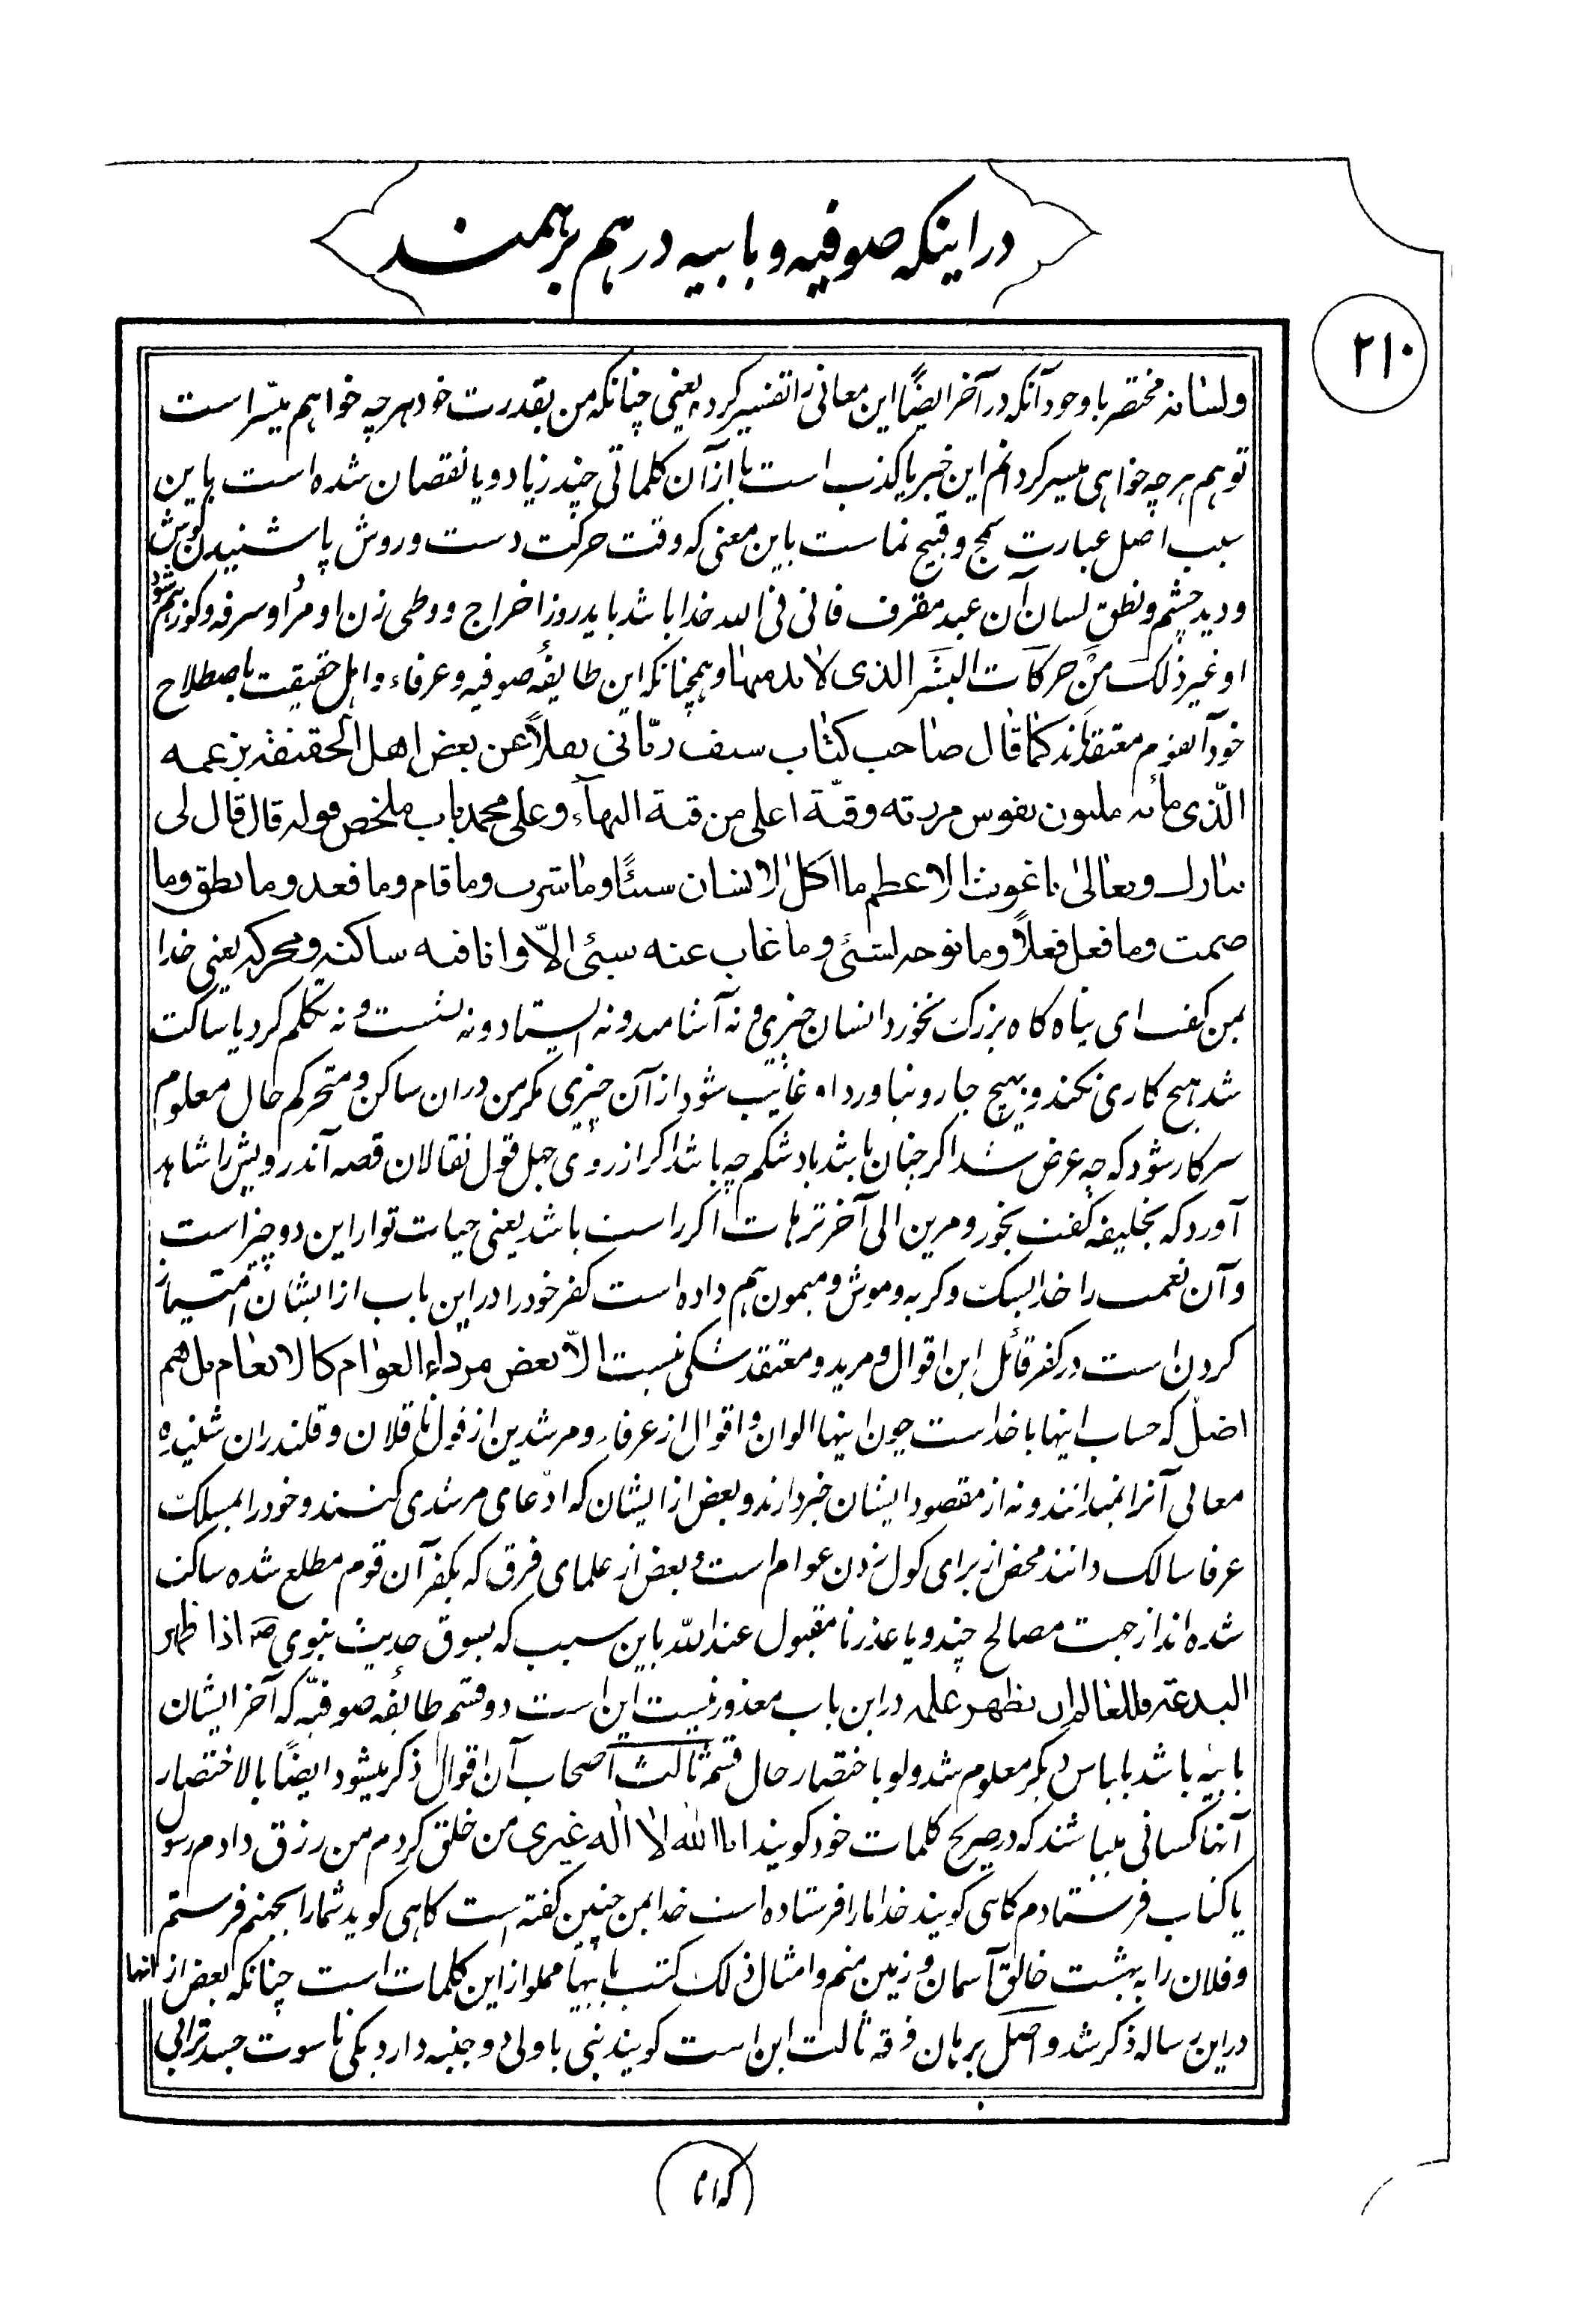 در اینکه صوفیه و بابیه در هم برهمند
۲۱۰
ولسانه مختصر با وجود آنکه در آخر ایضًا این معانی را تفسیر کرده یعنی چنانکه من بقدرت خود هر چه خواهم میسّر است
تو هم هر چه خواهی میسر کردانم این خبر یا کذب است یا از آن کلماتی چند زیاد و یا نقصان شده است باین
سبب اصل عبارت سمج و قبیح نماست باین معنی که وقت حرکت دست و روش پا شنیدن کوش
و دید چشم و نطق لسان آن عبد مقرف فانی فی الله خدا باشد باید روز اخراج و وطی زن او مرأو سرفه و کوز هم شود
او غیر ذلک من حرکات البشر الذی لا بد منها و همچنانکه این طایفهٔ صوفیه و عرفاء و اهل حقیقت باصطلاح
خود آنقوم معتقدند کما قال صاحب کتاب سیف ربّانی نقلاً عن بعض اهل الحقیقة بزعمه
الّذی مأته ملیون نفوس مریدته وقبّة اعلی من قبة البهآء و علی محمد باب ملخص قوله قال قال لی
تبارک وتعالی یا غوث الاعظم ما اکل الانسان شیئًا وما شرب وما قام وما قعد وما نطق وما
صمت وما فعل فعلاً وما توجه لشئی وما غاب عنه شئی الّا وانا فیه ساکنه ومحرکه یعنی خدا
بمن کفت ای پناه کاه بزرک نخورد انسان چیزی و نه آشامید و نه ایستاد و نه نشست و نه تکلم کرد یا ساکت
شد هیچ کاری نکند و بهیچ جا رو نیاورد او غایب شود از آن چیزی مکر من در ان ساکن و متحرکم حال معلوم
سرکار شود که چه عرض شد اکر چنان باشد باد شکم چه باشد اکر از روی جهل قول نقالان قصه آندرویش را شاهد
آورد که بخلیفه کفت بخور و مرین الی آخر ترهات اکر راست باشد یعنی حیات تو از این دو چیز است
و آن نعمت را خدا بسک و کربه و موش و میمون هم داده است کفر خود را در این باب از ایشان امتیاز
کردن است در کفر قائل این اقوال و مرید و معتقد شکی نیست الّا بعض مرداء العوام کالانعام بل هم
اضلّ که حساب اینها با خداست چون اینها الوان و اقوال از عرفاء و مرشدین از قول ناقلان و قلندران شنیده
معانی آنرا نمیدانند و نه از مقصود ایشان خبر دارند و بعض از ایشان که ادّعای مرشدی کنند و خود را بمسلک
عرفا سالک دانند محض از برای کول زدن عوام است و بعض از علمای فرق که بکفر آن قوم مطلع شده ساکت
شده اند از جهت مصالح چند و یا عذر نا مقبول عند الله باین سبب که بسوق حدیث نبوی صه اذا ظهر
البدعة وللعالم ان یظهر علمه در این باب معذور نیست این است دو قسم طایفهٔ صوفیّه که آخر ایشان
بابیه باشد بلباس دیکر معلوم شد ولو باختصار حال قسم ثالث اصحاب آن اقوال ذکر میشود ایضًا بالاختصار
آنها کسانی میباشند که در صریح کلمات خود کویند انا الله لا اله غیری من خلق کردم من رزق دادم رسول
یا کتاب فرستادم کاهی کویند خدا ما را فرستاده است خدا بمن چنین کفته است کاهی کوید شما را بجهنم فرستم
و فلان را به بهشت خالق آسمان و زمین منم و امثال ذلک کتب بابیها مملو از این کلمات است چنانکه بعض از آنها
در این رساله ذکر شد و اصل برهان فرقه ثالث این است کویند نبی یا ولی دو جنبه دارد یکی ناسوت جسد ترابی
که انام